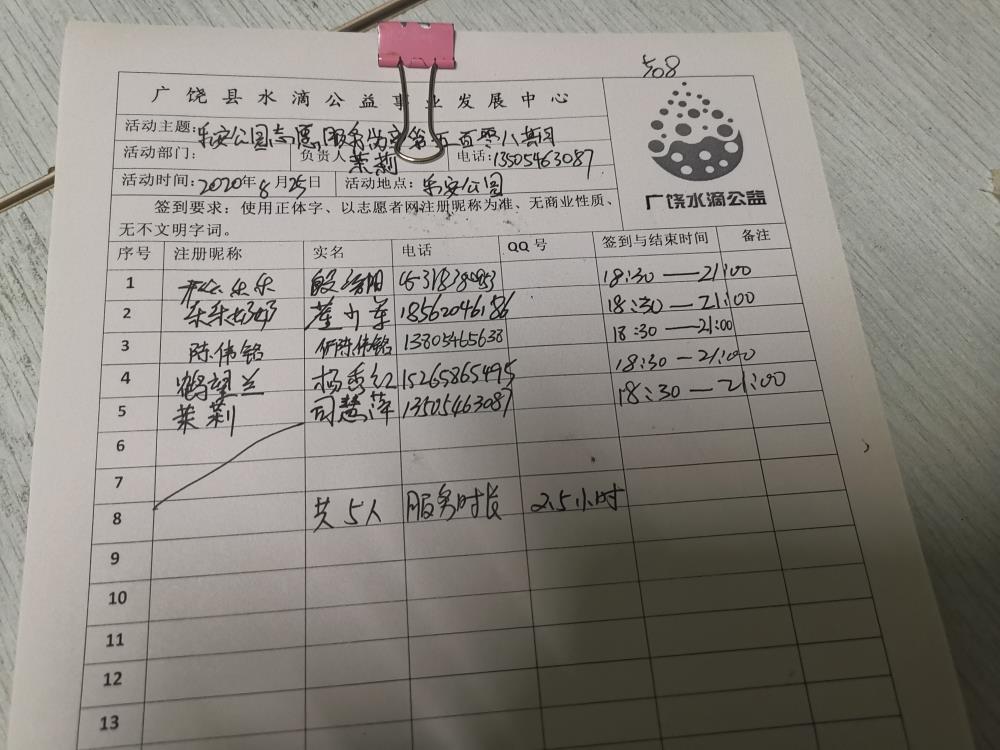 508
广饶县水滴公益事业发展中心
活动主题:乐安公园志愿服务岗亭第五百零八期
活动部门: 负责人 茉莉 电话:13505463087
活动时间:2020年8月25日 活动地点:乐安公园
签到要求:使用正体字、以志愿者网注册昵称为准、无商业性质、
无不文明字词。
广饶水滴公益
序号 注册昵称 实名 电话 QQ号 签到与结束时间 备注
1 18:30—21:00
2 乐乐奶奶 董 18562046186 18:30—21:00
3 陈伟铭 陈伟铭 13805465638 18:30—21:00
4 鹤望兰 杨秀红 15265865495 18:30—21:00
5 茉莉 司慧萍 13505463087 18:30—21:00
6
7
8 共5人 服务时长 2.5小时
9
10
11
12
13